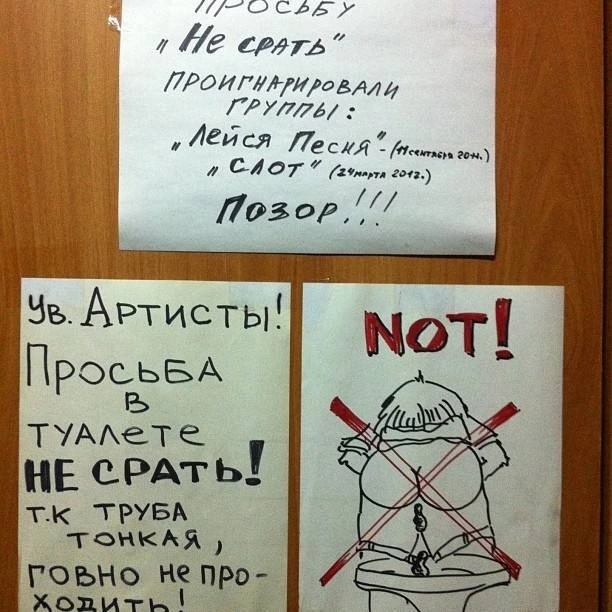 ПРОСЬБУ
„НЕ СРАТЬ"
ПРОИГНАРИРОВАЛИ
ГРУППЫ:
„ЛЕЙСЯ ПЕСНЯ" - (11 СЕНТЯБРЯ 2011г.)
„СЛОТ" (24 МАРТА 2012г.)
ПОЗОР!!!
УВ. АРТИСТЫ!
ПРОСЬБА
В
ТУАЛЕТЕ
НЕ СРАТЬ!
Т.К ТРУБА
ТОНКАЯ,
ГОВНО НЕ ПРО-
ХОДИТЬ!
NOT!